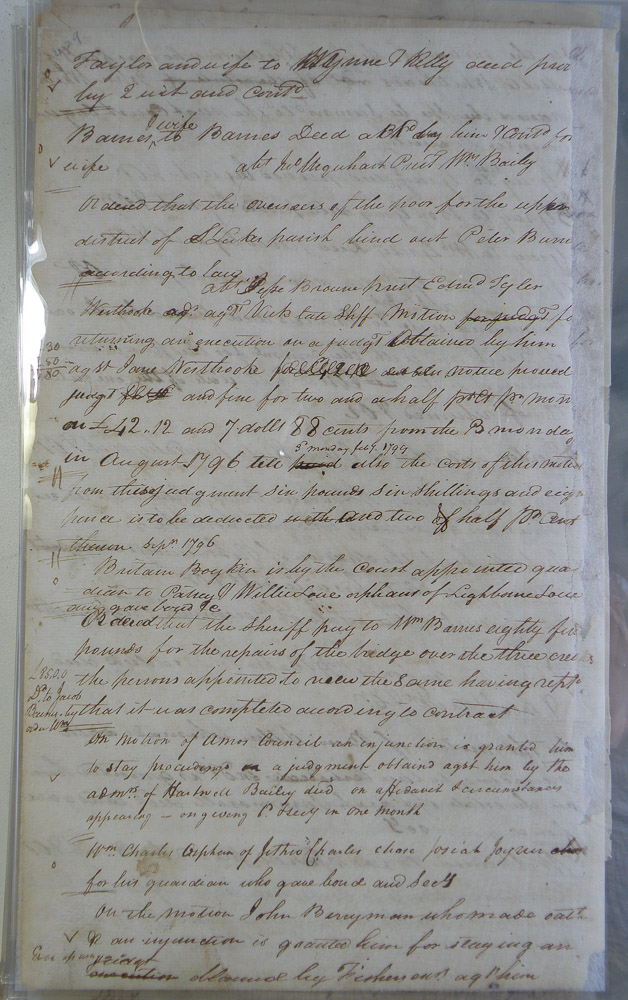 Taylor and wife to Wynne & Kelly deed prov
by 2 wit and contd
& wife
Barnes to Barnes Deed ackd by him & Contd for
wife abt Jno Urquhart Prest Wm Baily
Ordend that the overseers of the poor for the upper
district of St Lukes parish bind out Peter Burn
according to law
abt Brown prest Edmd Tyler
Westbrooke agt Vick late Shff Motion for judgt fo
returning an execution on a judgt Obtained by him
30
50
80
agst Jane Westbrooke notice proved
judgt and fine for two and a half pr mon
on £42.12 and 7 dolls 88 cents from the 3 monday
3d monday feby. 1799
in August 1796 till paid also the costs of this motion
from this judgment six pounds six shillings and eigh
pence is to be deducted with and two & half pr Cent
thereon Sepr. 1796
Britain Boykin is by the Court appointed gua
dian to Patsey & Willie Love orphans of Lighborne Love
and gave bond &c
Ordend that the Sheriff pay to Wm Barnes eighty five
pounds for the repairs of the bridge over the three creeks
£85.0.0
Dd to Jacob
Barnes by
order Wm
the persons appointed to view the Same having rept
that it was completed according to contract
On Motion of Amos Council an injunction is granted him
to stay proceedings on a judgment obtaind agst him by the
admrs. of Hartwell Bailey decd. on affidavit & circumstances
appearing – on giving Bd & secy in one month
Wm Charles Orphan of Jethro Charles chose Josiah Joyner
for his guardian who gave bond and Secy
On the motion John Berryman who made oath
& an injunction is granted him for staying an
judgt
execution obtained by Fishers exs agst him